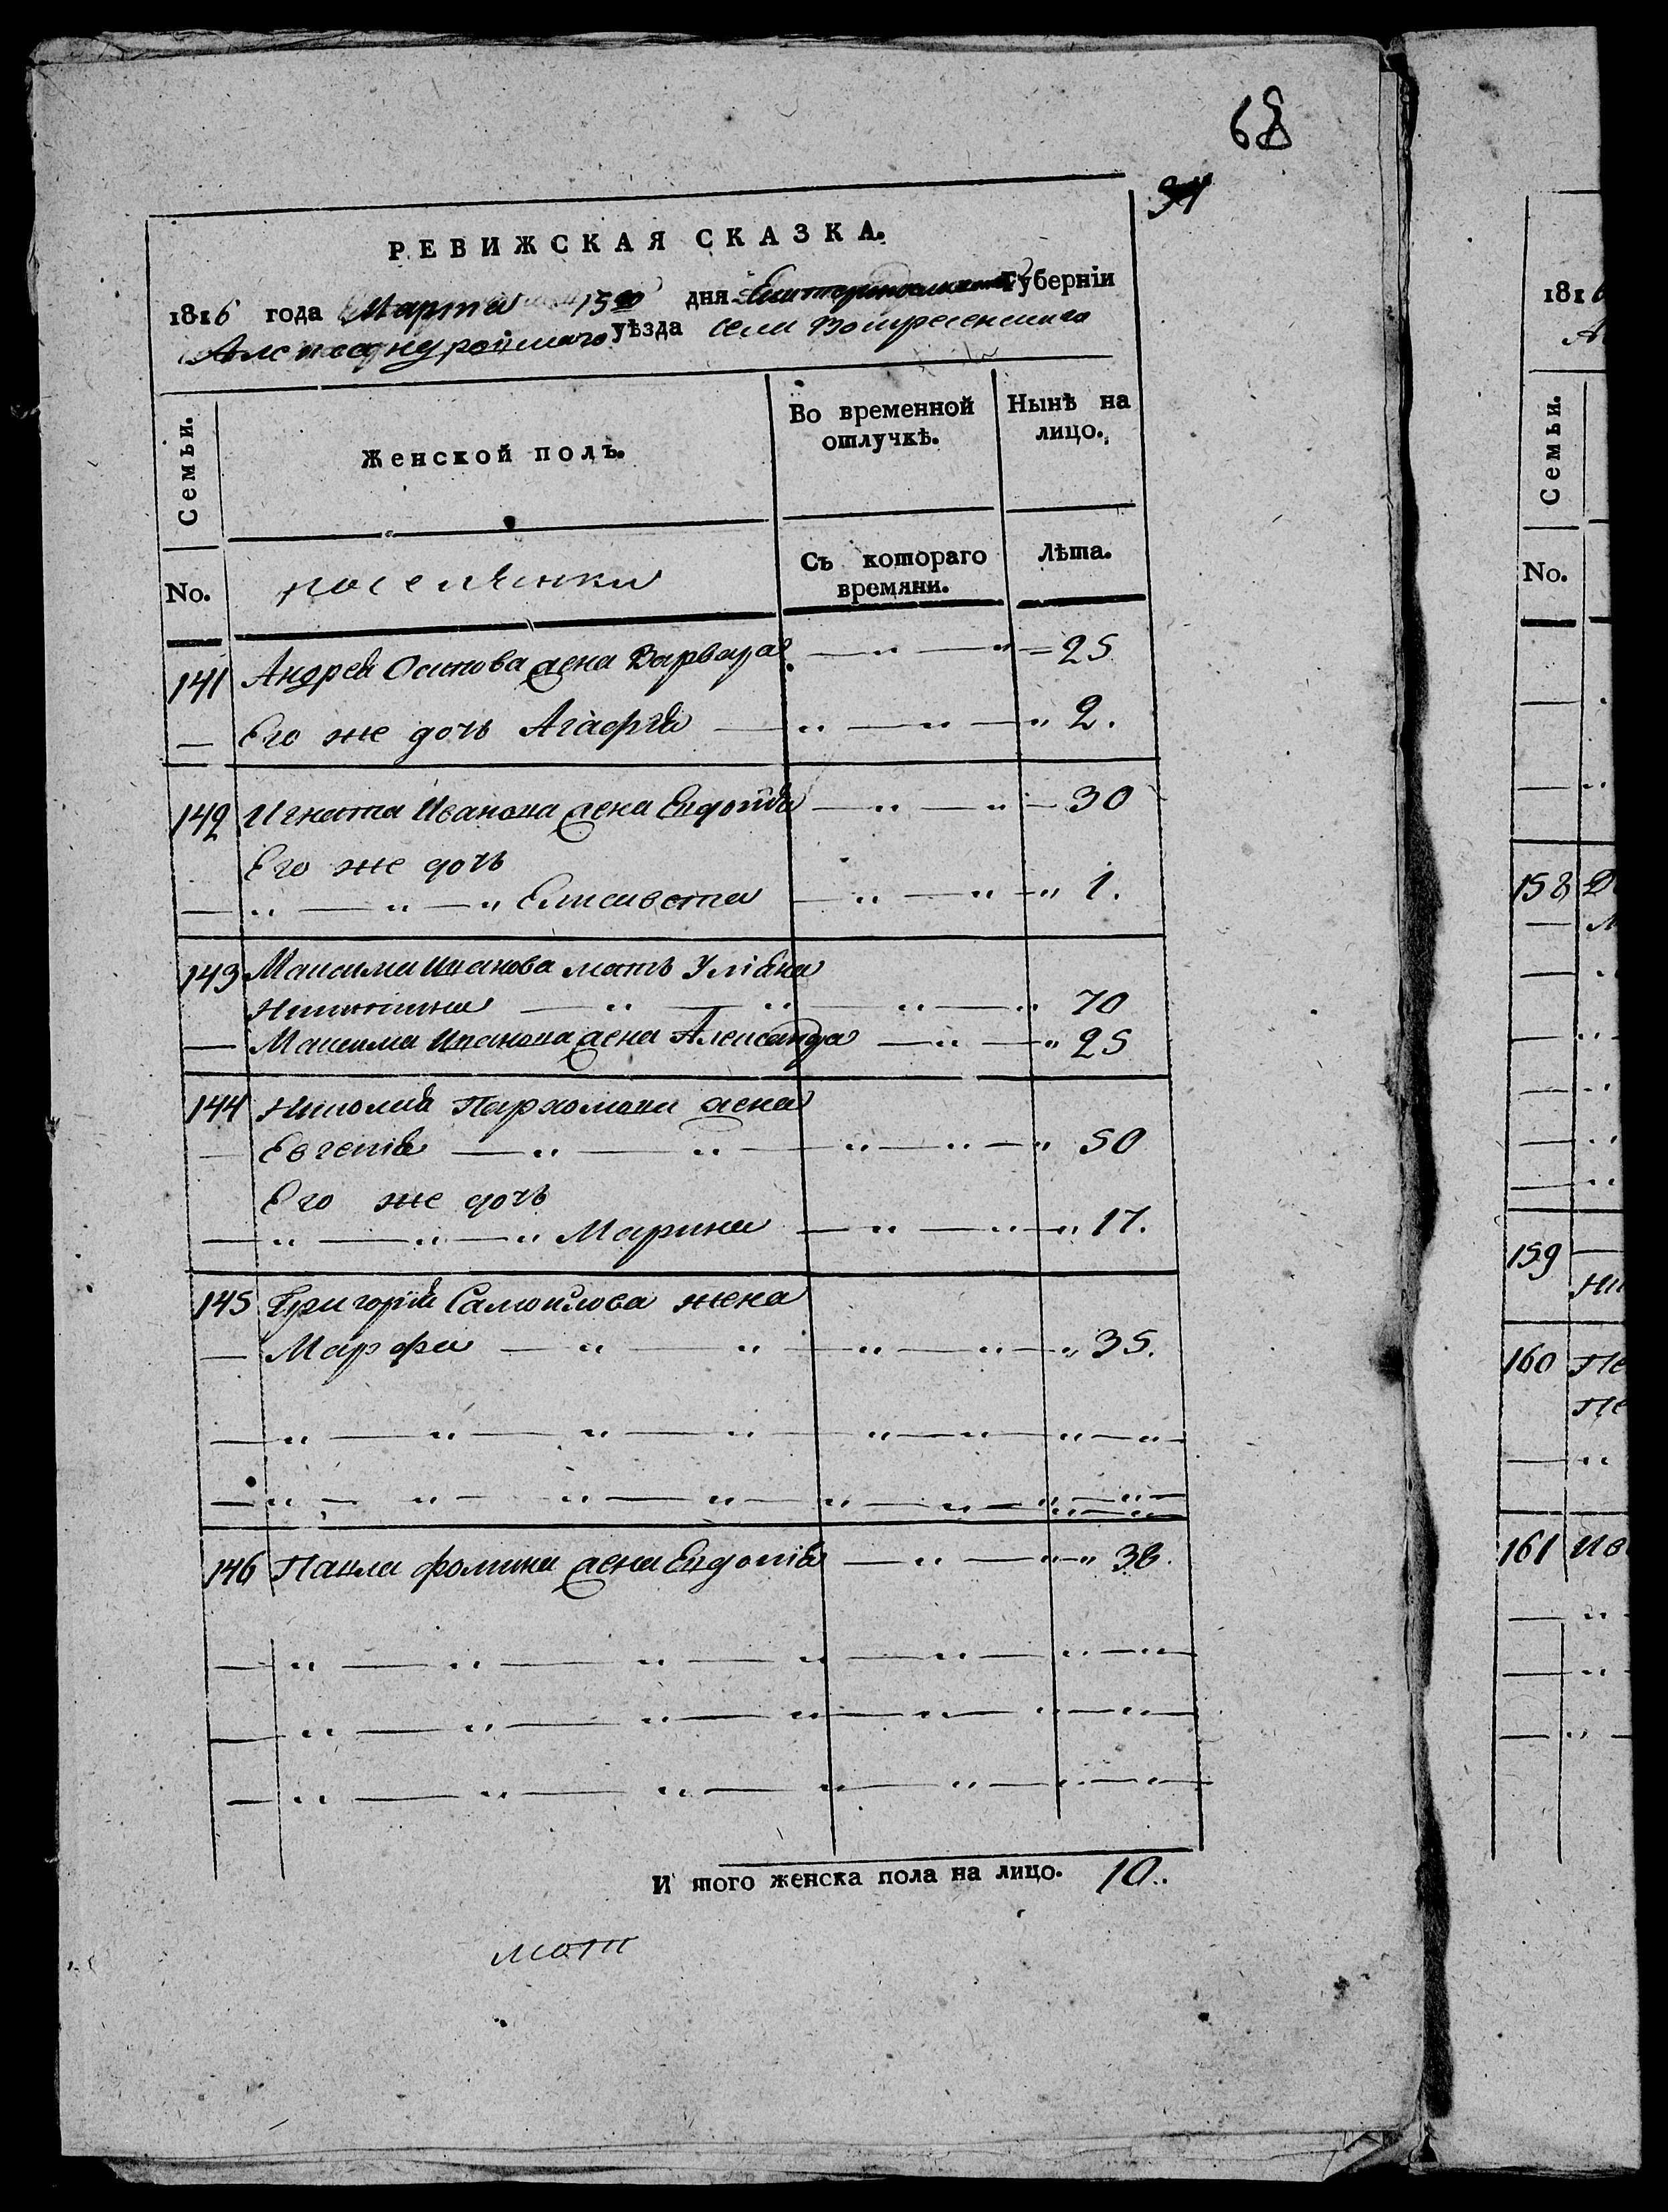 68
34
РЕВИЖСКАЯ СКАЗКА.
1816 года Марта 15го дня Екатеринославской Губерніи
Александровскаго уѣзда села Воскресенскаго
Семьи.
Женской полъ.
Во временной отлучкѣ.
Нынѣ на лицо.
No.
поселянки
Съ котораго времяни.
Лѣта.
141 Андрея Осипова жена Варвара — " — " = 25
— Его же дочь Агафія — " — " — " 2.
142 Игната Иванова жена Евдокія — " — " — 30
Его же дочь
— " — " — " Елисавета — " — " — " 1.
143 Максима Иванова мать Уліяна
Никитина — " — " — " — " 70
— Максима Иванова жена Александра — " — " 25
144 Николая Пархомова жена
— Евгенія — " — " — " — " — " 50
Его же дочь
— " — " — " Марина — " — " — " 17.
145 Григорія Самойлова жена
— Марфа — " — " — " — " — " 35.
— " — " — " — " — " — " — " — "
— " — " — " — " — " — " — " — "
146 Павла Фомина жена Евдокія — " — " — " 38.
— " — " — " — " — " — " — "
— " — " — " — " — " — " — "
— " — " — " — " — " — " — "
И того женска пола на лицо. 10.
мат
1816
А
Семьи.
No.
158
159
Ни
160 Пе
Пе
161